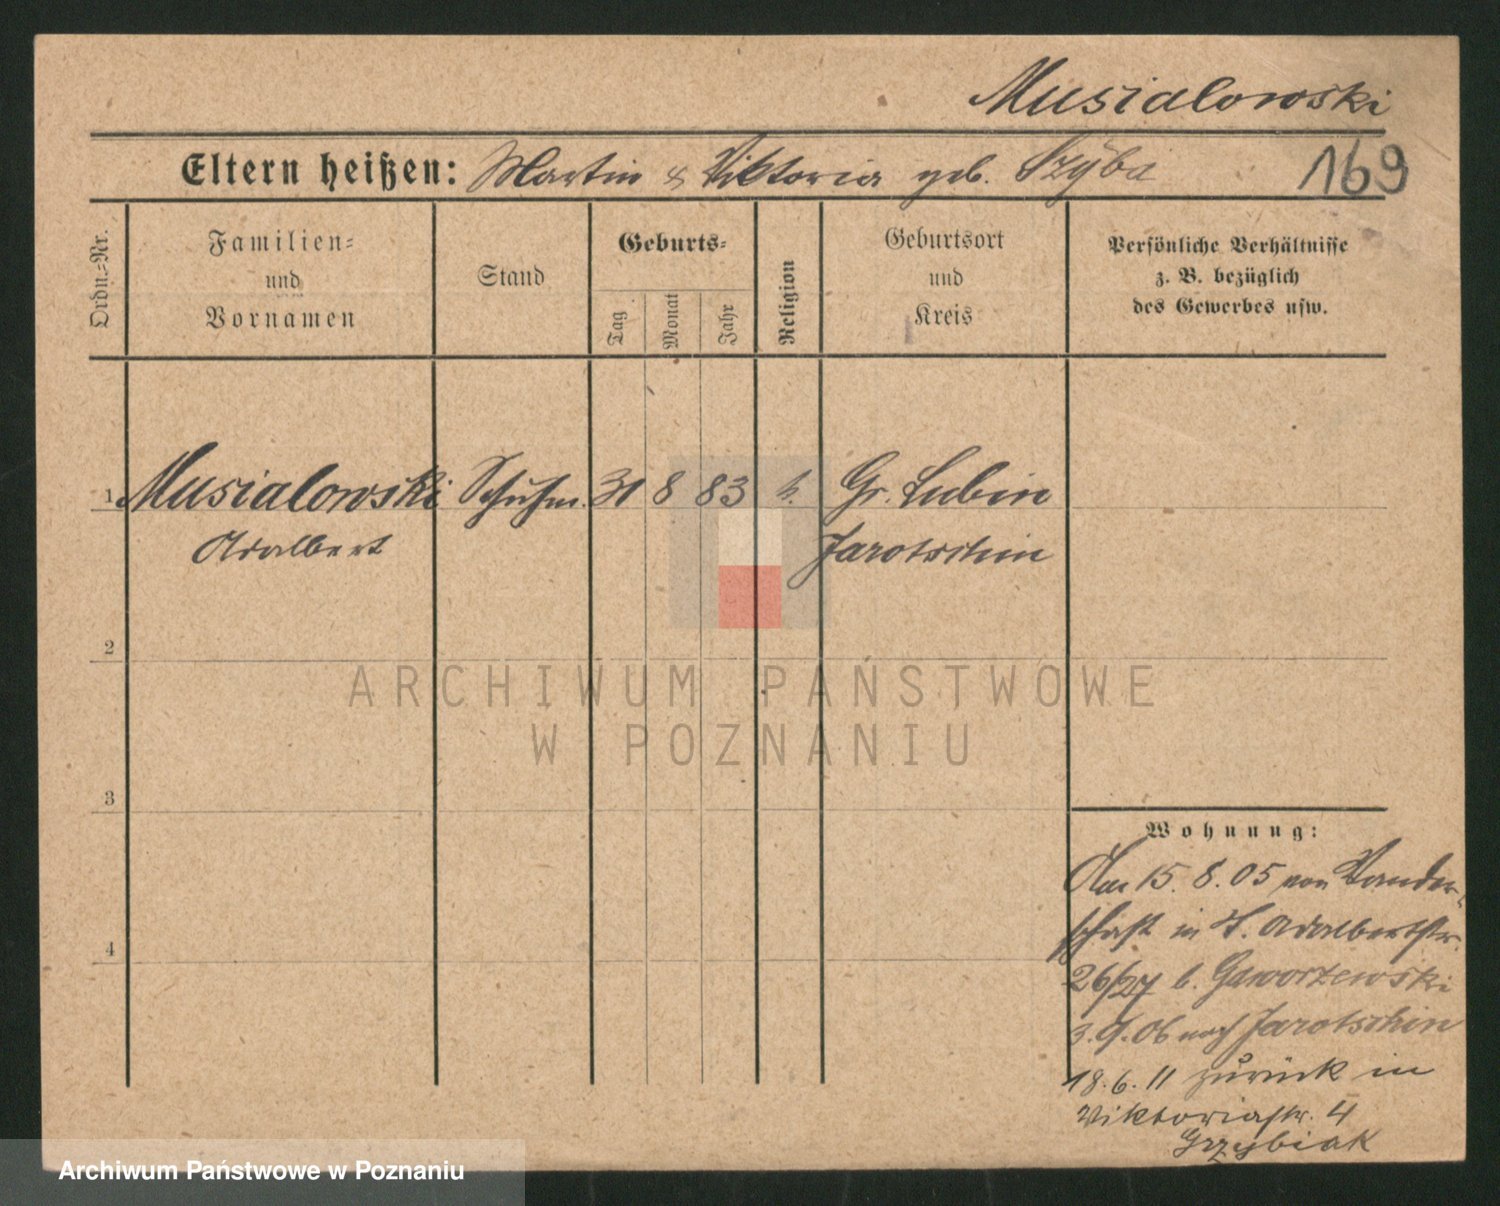 Musialowski
Eltern heißen: Martin & Viktoria geb. Szyba
169
Ordn.-Nr.
Familien-
und
Vornamen
Stand
Geburts-
Tag
Monat
Jahr
Religion
Geburtsort
und
Kreis
Persönliche Verhältnisse
z. B. bezüglich
des Gewerbes usw.
1 Musialowski Schuhm. 31 8 83 k. Gr. Lubin
Adalbert Jarotschin
2
3
4
ARCHIWUM PAŃSTWOWE
W POZNANIU
Wohnung:
Am 15. 8. 05 von Wander-
schaft in St. Adalbertstr.
26/27 b. Gaworzewski
3. 9. 06 nach Jarotschin
18. 6. 11 zurück in
Viktoriastr. 4
Grzybiak
Archiwum Państwowe w Poznaniu